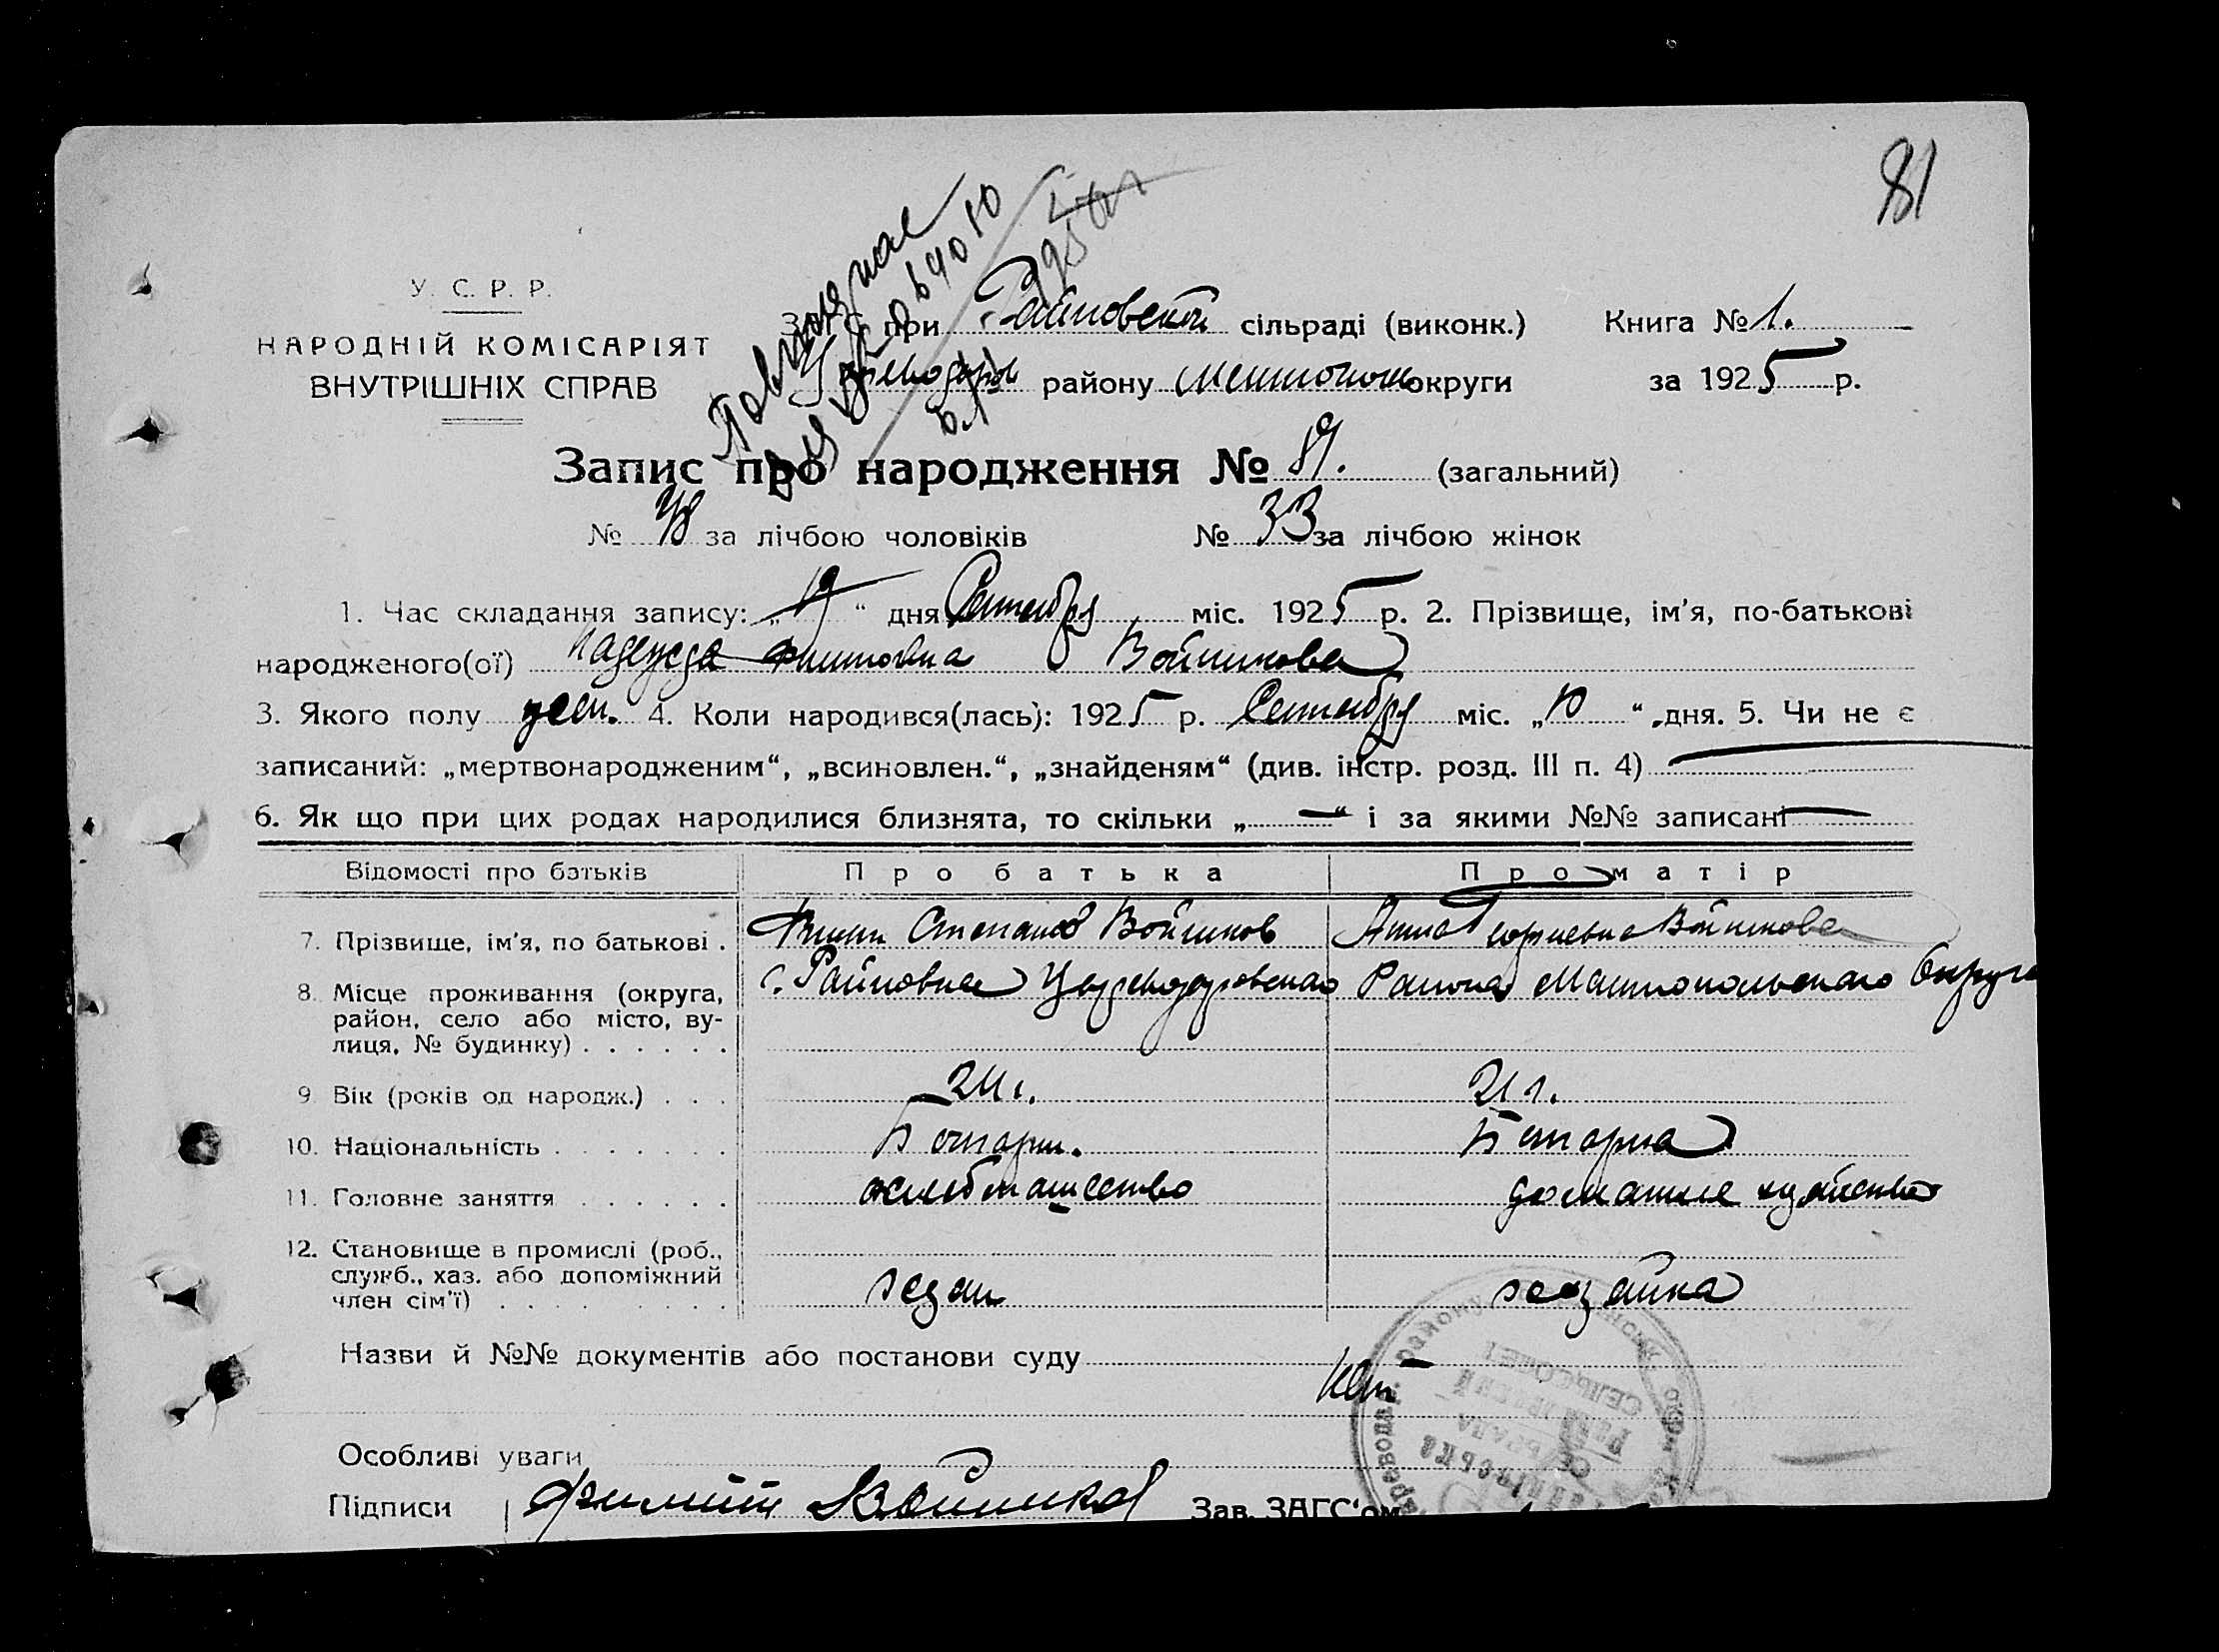 81
У. С. Р. Р.
НАРОДНІЙ КОМІСАРІЯТ
ВНУТРІШНІХ СПРАВ
Повторное
ЗАГС при Райновской сільраді (виконк.) Книга № 1.
району Мелитопол округи за 1925 р.
Запис про народження № 81. (загальний)
№ 48 за лічбою чоловіків № 33 за лічбою жінок
1. Час складання запису: „19“ дня Сентября міс. 1925 р. 2. Прізвище, ім’я, по-батькові
народженого(ої) Надежда Филиповна Войникова
3. Якого полу жен. 4. Коли народився(лась): 1925 р. Сентября міс. „10“ дня. 5. Чи не є
записаний: „мертвонародженим“, „всиновлен.“, „знайденям“ (див. інстр. розд. III п. 4)
6. Як що при цих родах народилися близнята, то скільки „—“ і за якими №№ записані —
Відомості про батьків Про батька Про матір
7. Прізвище, ім’я, по батькові . Филип Степанов Войников Анна Войникова
8. Місце проживання (округа, с. Райновка Цареводаровскаго Района Мелитопольскаго Округа
район, село або місто, ву-
лиця, № будинку) . . . . . .
9. Вік (років од народж.) . . . 24 г. 21 г.
10. Національність . . . . . . . Болгарин. Болгарка
11. Головне заняття . . . . . . хлебопашество домашнее хозяйство
12. Становище в промислі (роб.,
служб., хаз. або допоміжний
член сім’ї) . . . . . . . . . хозяин хозяйка
Назви й №№ документів або постанови суду
Нет
Особливі уваги
Підписи Филипп Войников Зав. ЗАГС‘ом
СЕЛЬСОВЕТ